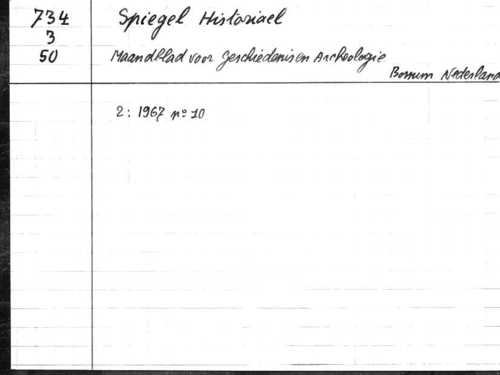 734 Spiegel Historiael
3
50 Maandblad voor Geschiedenis en Archeologie
Bossum Nederland
2: 1967 nº 10